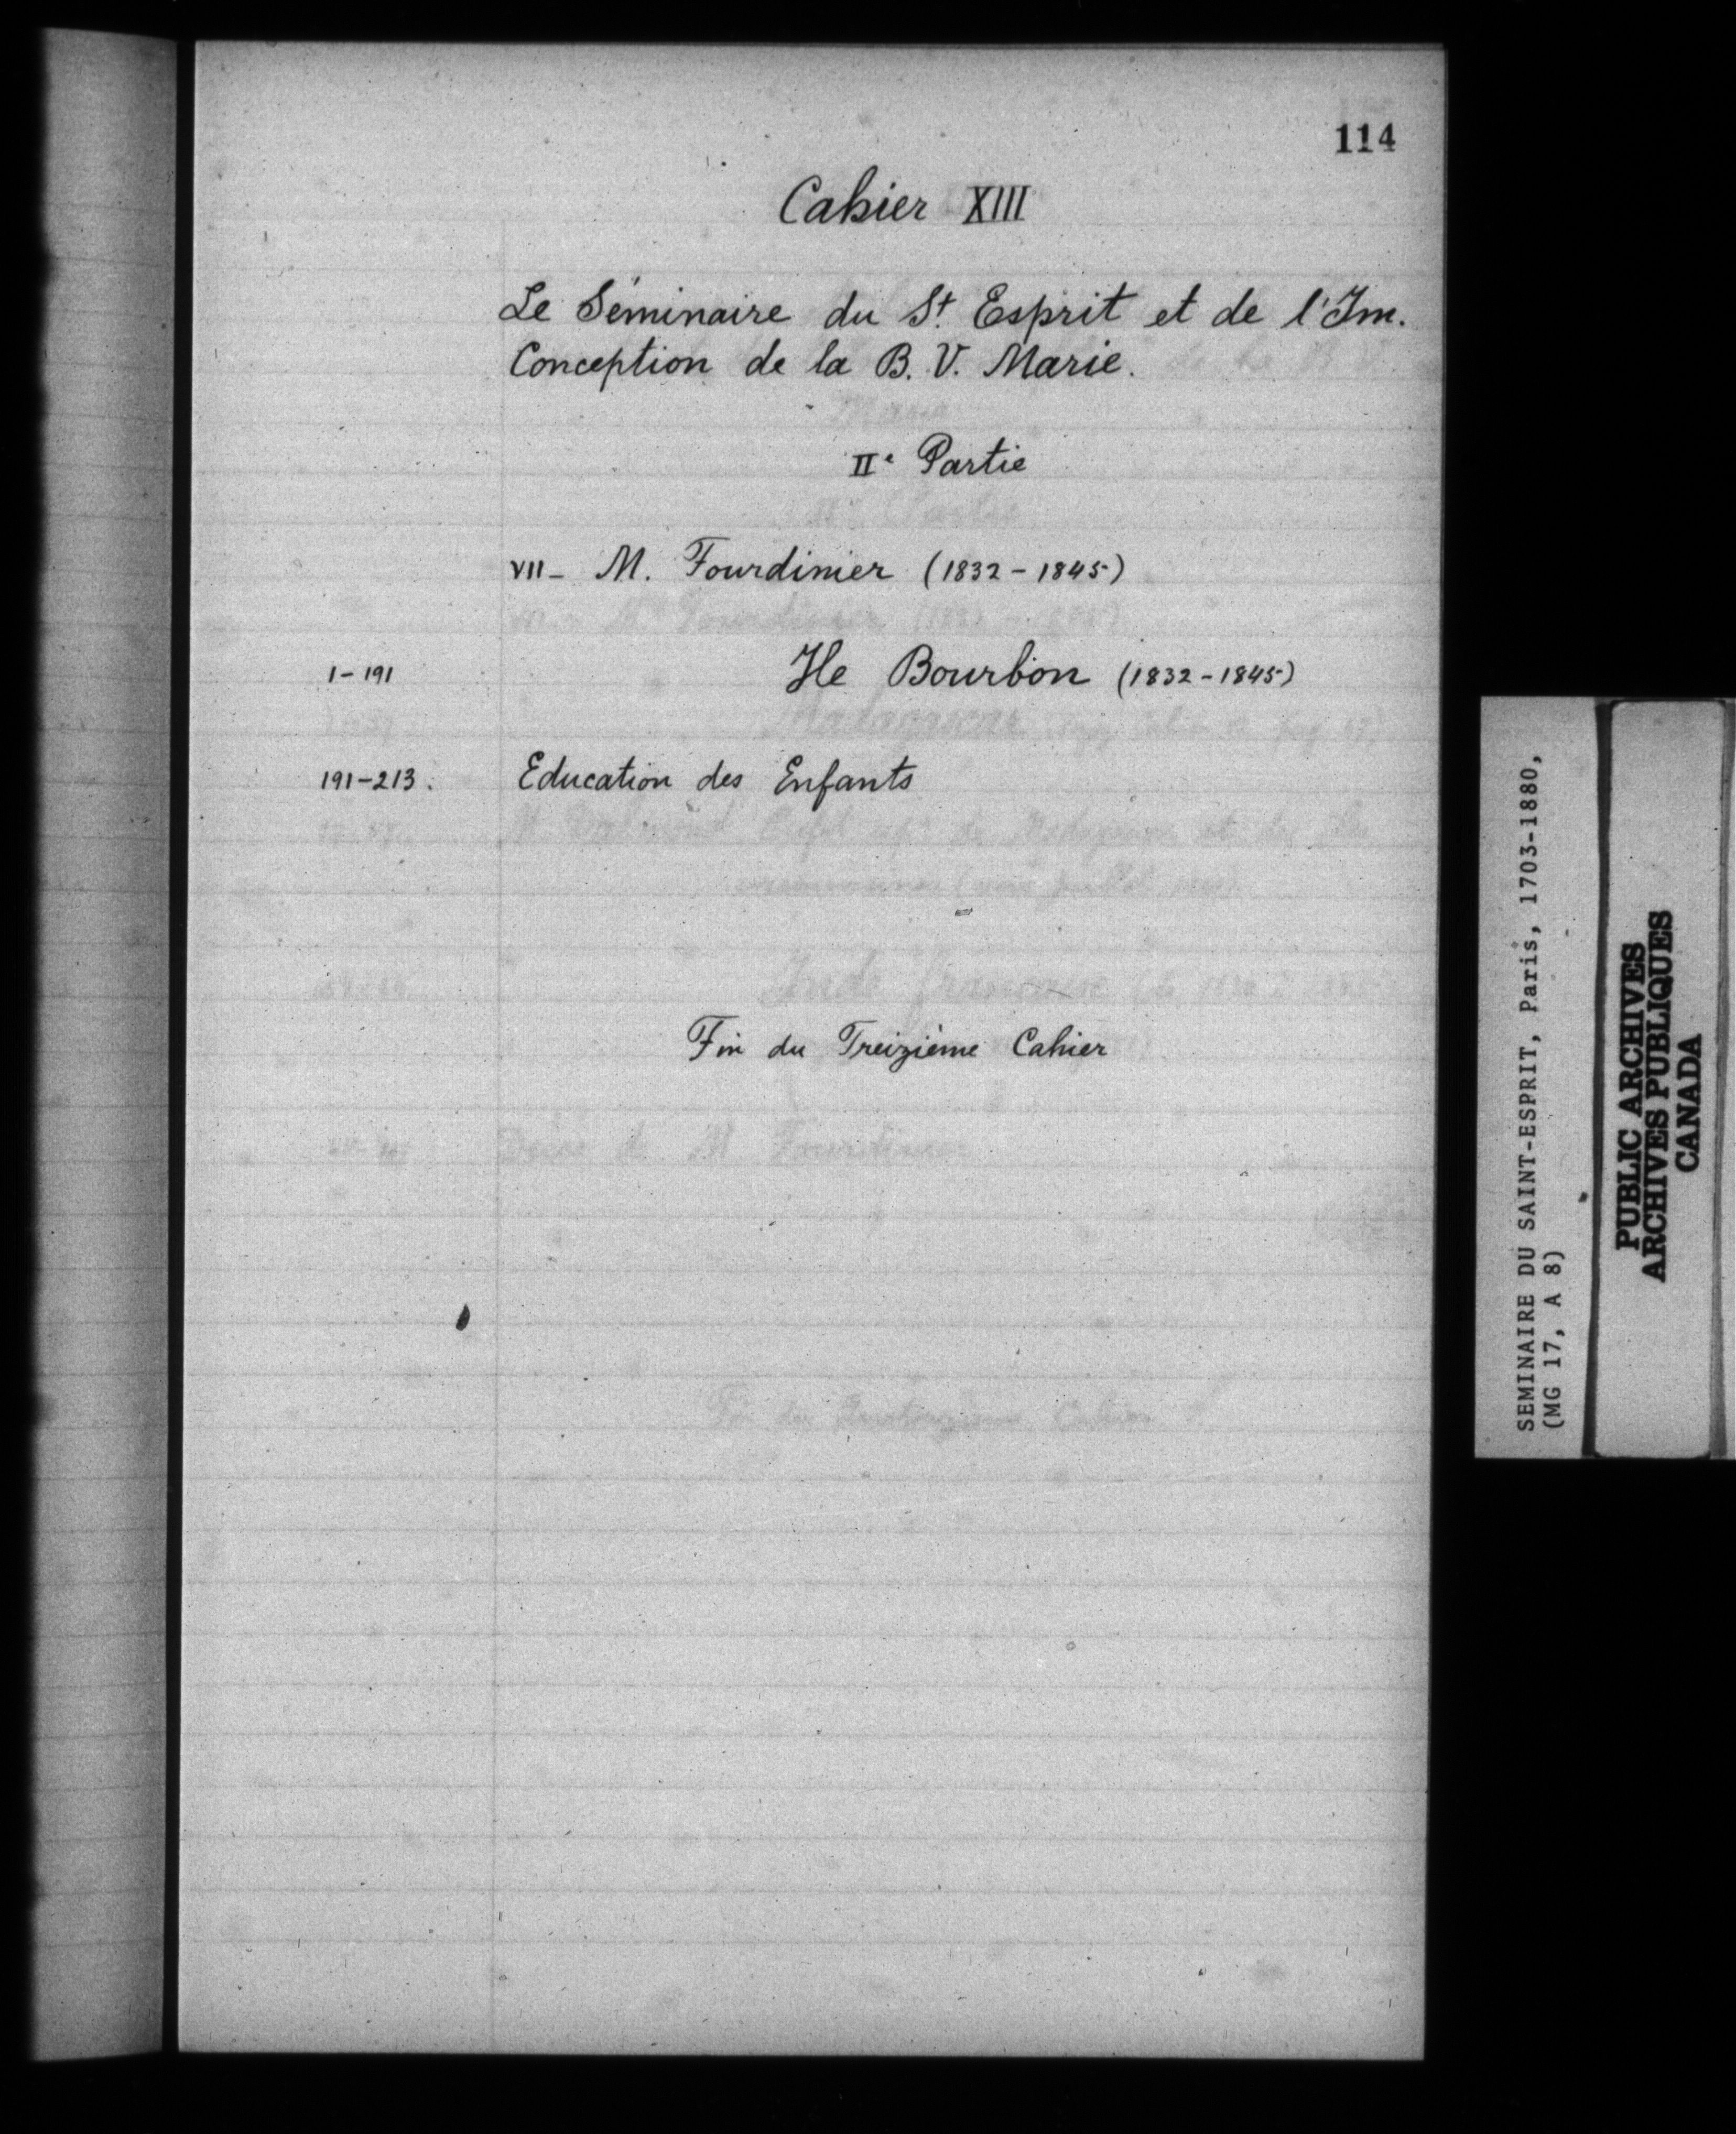 114
Cahier XIII
Le Séminaire du St. Esprit et de l'Im.
Conception de la B. V. Marie.
IIe Partie
VII - M. Fourdinier (1832 - 1845)
1 - 191 Ile Bourbon (1832 - 1845)
191 - 213. Education des Enfants
Fin du Treizième Cahier
SEMINAIRE DU SAINT-ESPRIT, Paris, 1703-1880,
(MG 17, A 8)
PUBLIC ARCHIVES
ARCHIVES PUBLIQUES
CANADA